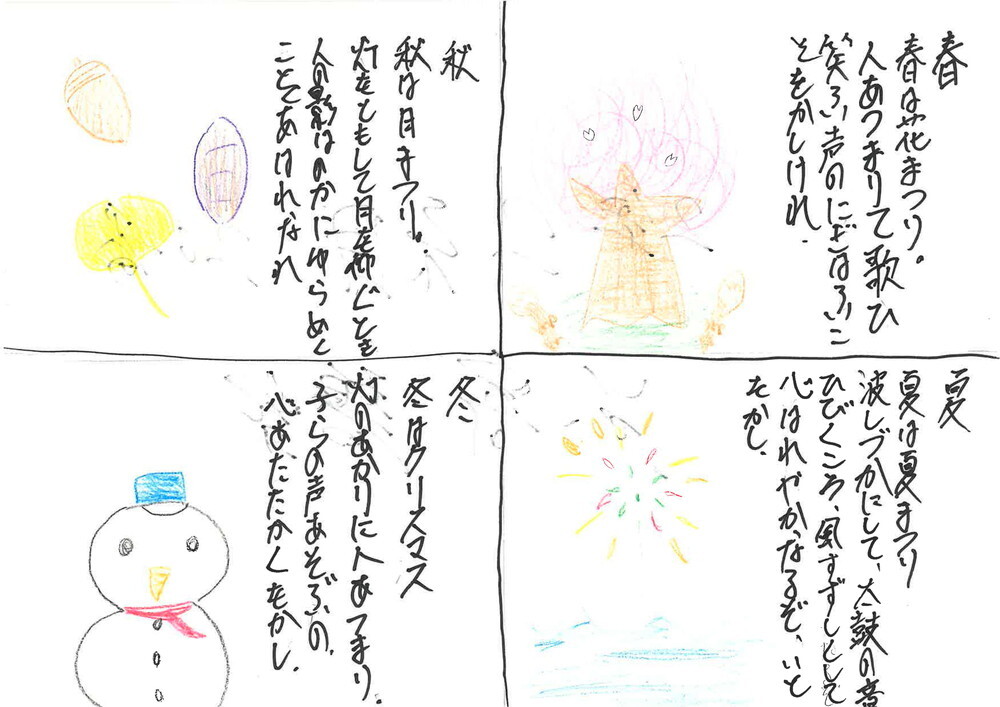 春
春は花まつり。
人あつまりて歌ひ
笑ふ声のにぎはふこ
とをかしけれ.
夏
夏は夏まつり
波しづかにして、太鼓の音
ひびくころ、風すずしくして
心はれやかなるぞ、いと
をかし.
秋
秋は月まつり。
灯をともして月を仰ぐとき
人の影ほのかにゆらめく
ことてあはれなれ
冬
冬はクリスマス
灯のあかりに人あつまり.
子らの声あそぶの
心あたたかくをかし.